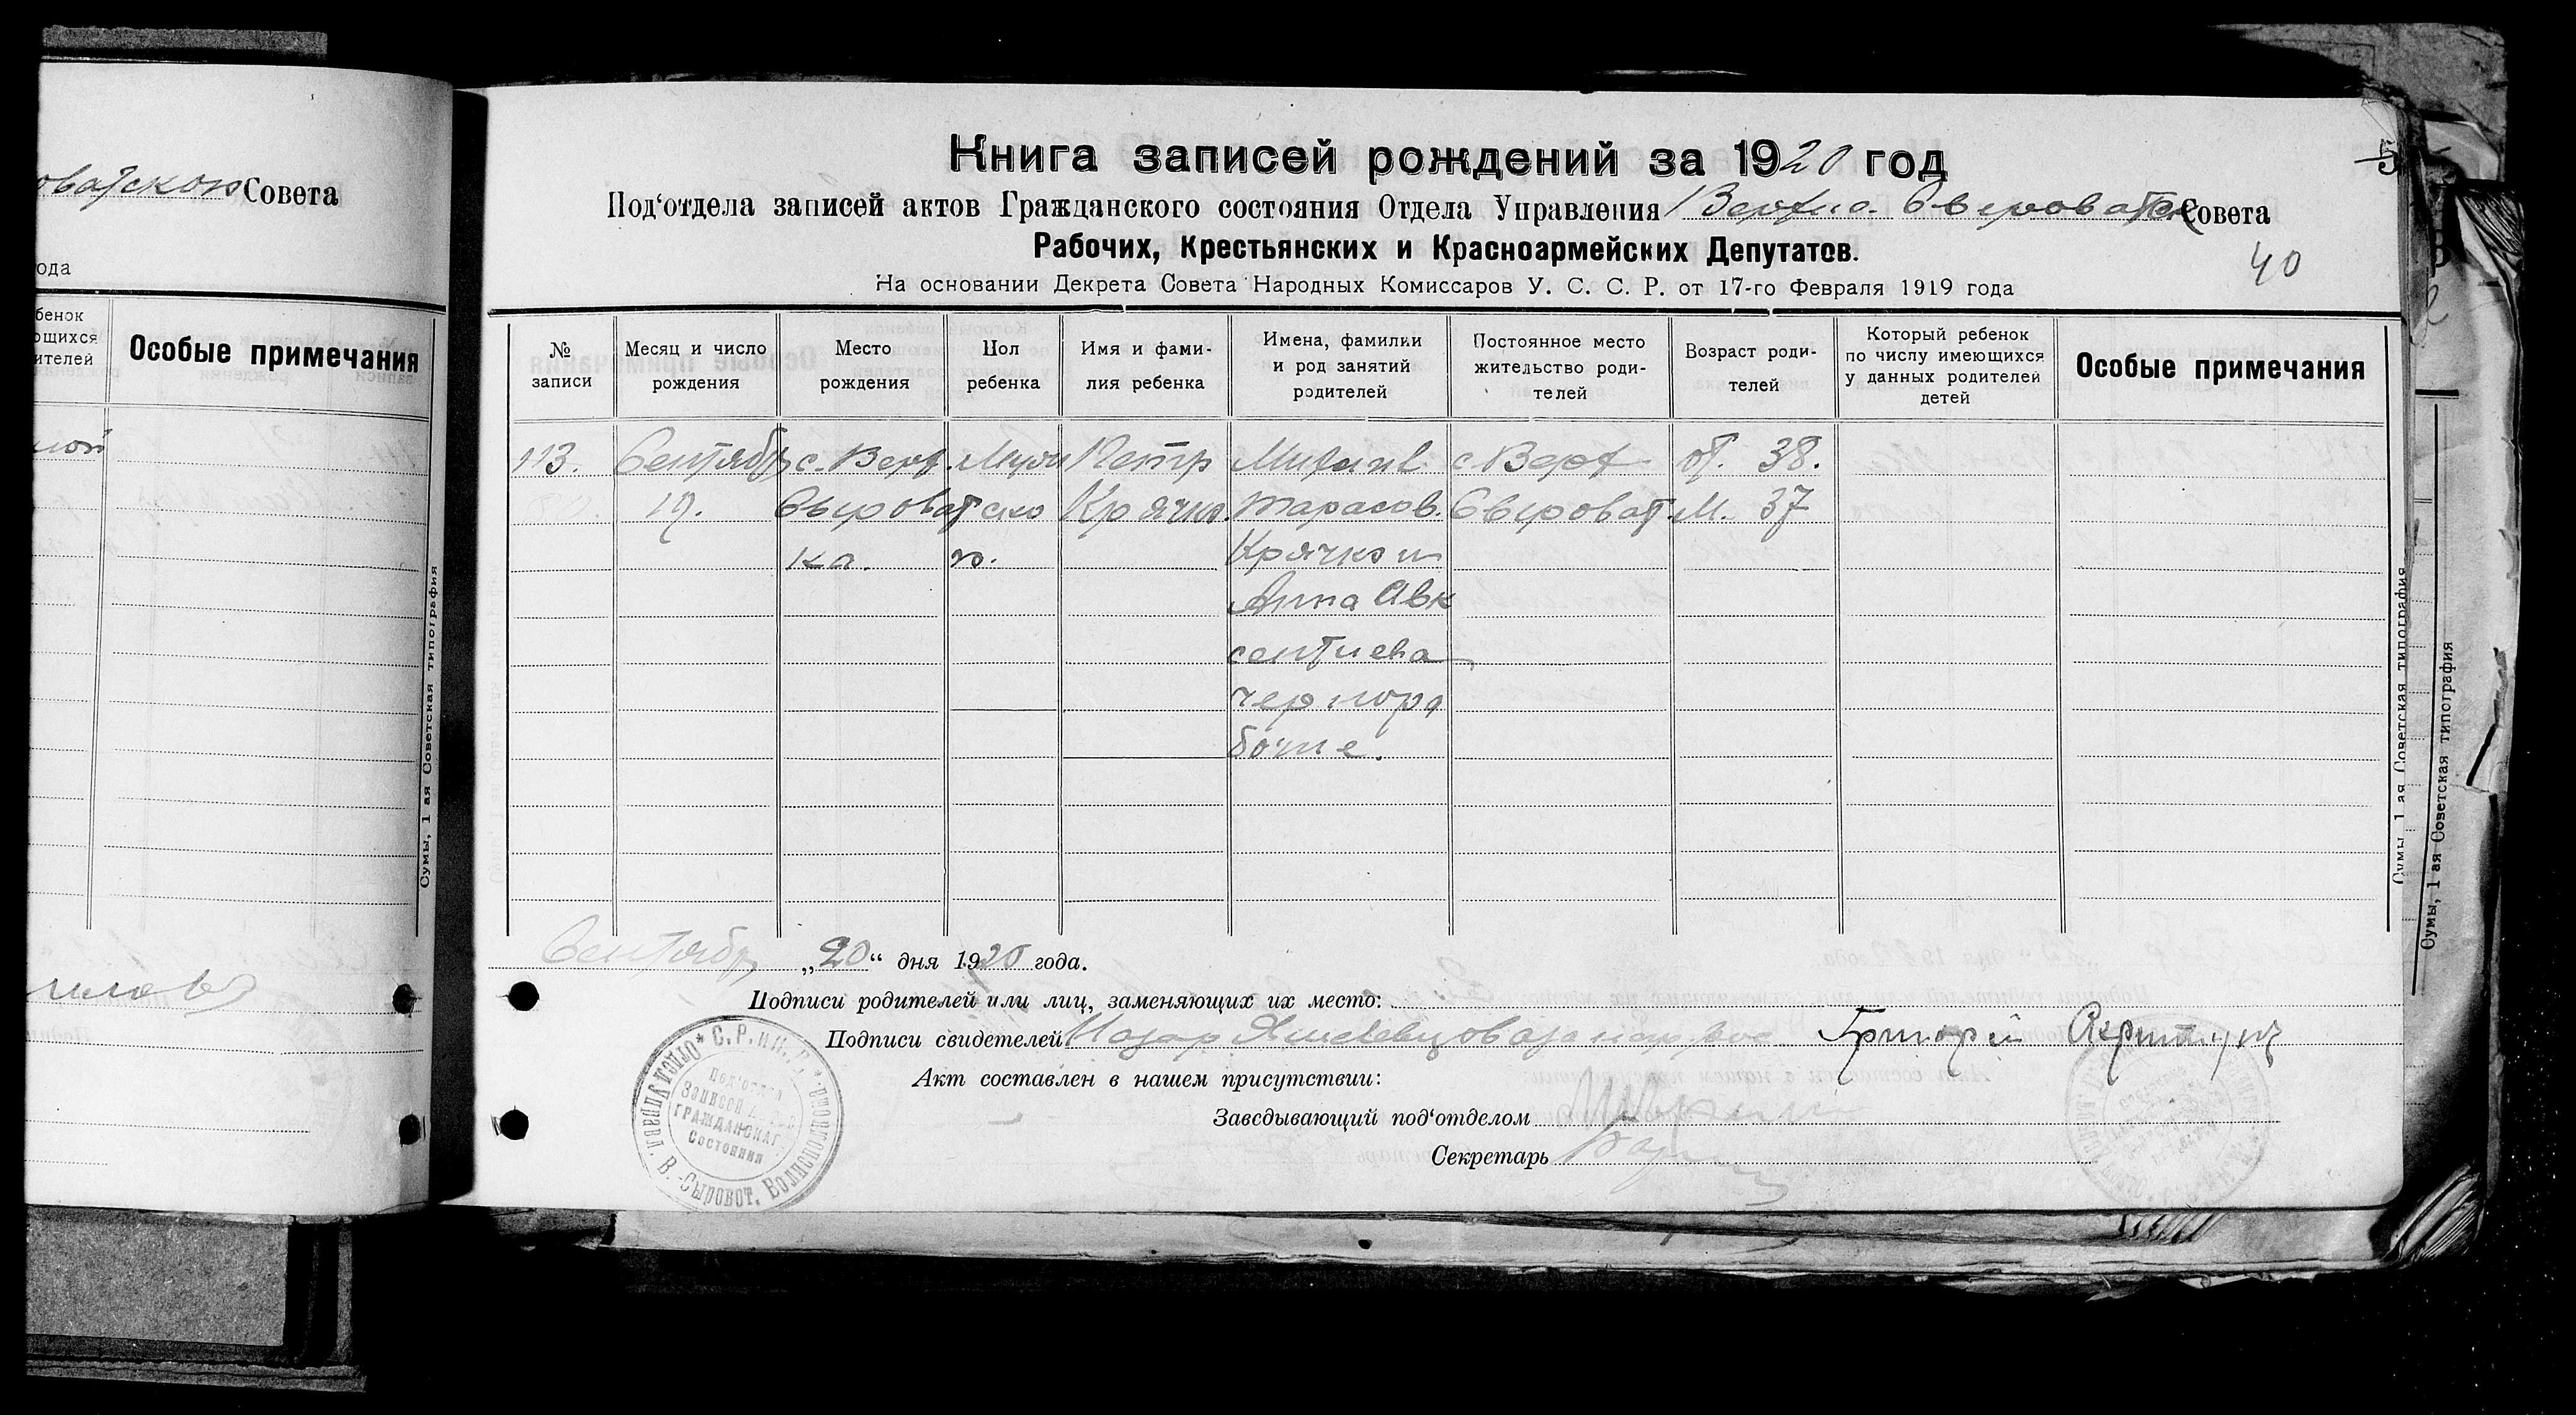 оватской Совета
ода
бенок
ющихся
ителей
Особые примечания
Сумы, 1 ая Советская типография
5
Книга записей рождений за 1920 год
Под‘отдела записей актов Гражданского состояния Отдела Управления Верхно. Сыроватск Совета
Рабочих, Крестьянских и Красноармейских Депутатов.
40
На основании Декрета Совета Народных Комиссаров У. С. С. Р. от 17-го Февраля 1919 года
№ записи
Месяц и число рождения
Место рождения
Пол ребенка
Имя и фами- лия ребенка
Имена, фамилии и род занятий родителей
Постоянное место жительство роди- телей
Возраст роди- телей
Который ребенок по числу имеющихся у данных родителей детей
Особые примечания
113. Сентябр с. Верх. Мужс Петр Михаил с. Верх от. 38.
19. Сыроват ско Крячко. Тарасов. Сыроват. М. 37
ка. го. Крячко и
Анна Авк
сентиева
чернора
бочие.
Сентябр „20“ дня 1920 года.
Подписи родителей или лиц, заменяющих их место:
Подписи свидетелей Назар Григорий
Акт составлен в нашем присутствии:
Заведывающий под‘отделом
Секретарь
Отдел Управл. В.-Сыровот. Волисполкома
Под‘отдел
Записей
Гражданскаг
Состояния
Сумы, 1 ая Советская типография
Сумы, 1 ая Советская типография